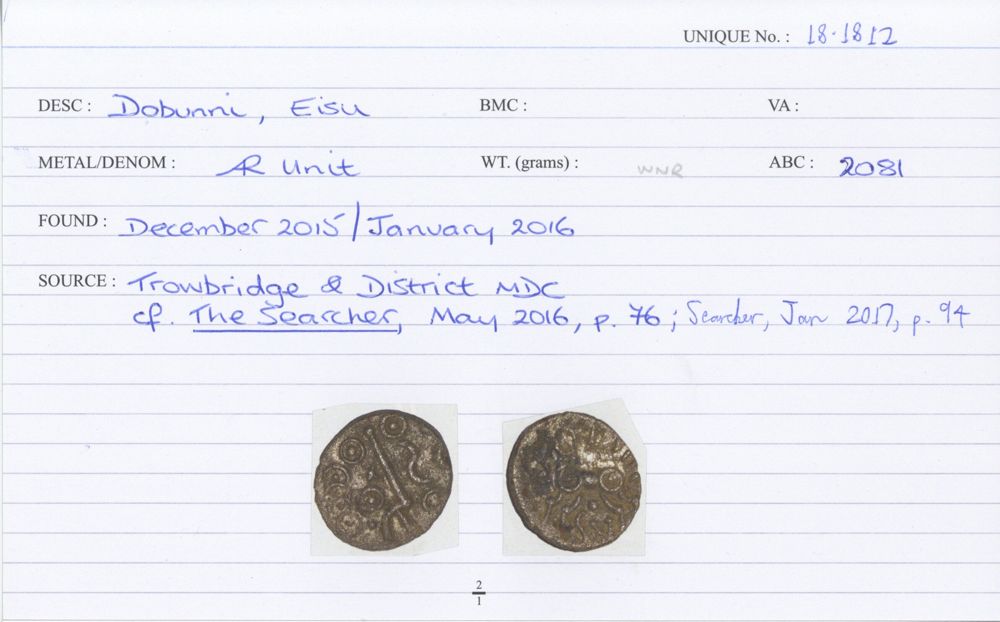 UNIQUE No. : 18.1812
DESC : Dobunni, Eisu BMC : VA :
METAL/DENOM : AR Unit WT. (grams) : WNR ABC : 2081
FOUND : December 2015/January 2016
SOURCE : Trowbridge & District MDC
cf. The Searcher, May 2016, p. 76; Searcher, Jan 2017, p. 94
2
1